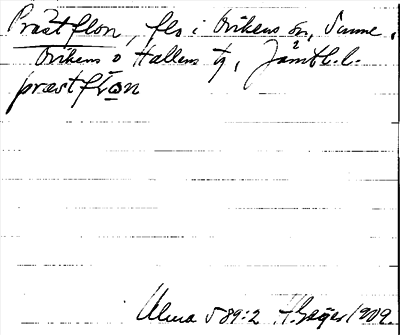 Prästflon, flo i Ovikens sn, Sunne,
Ovikens o Hallens tg, Jämtl. l.
præstflon
Ulma 589:2 H Geijer 1909.